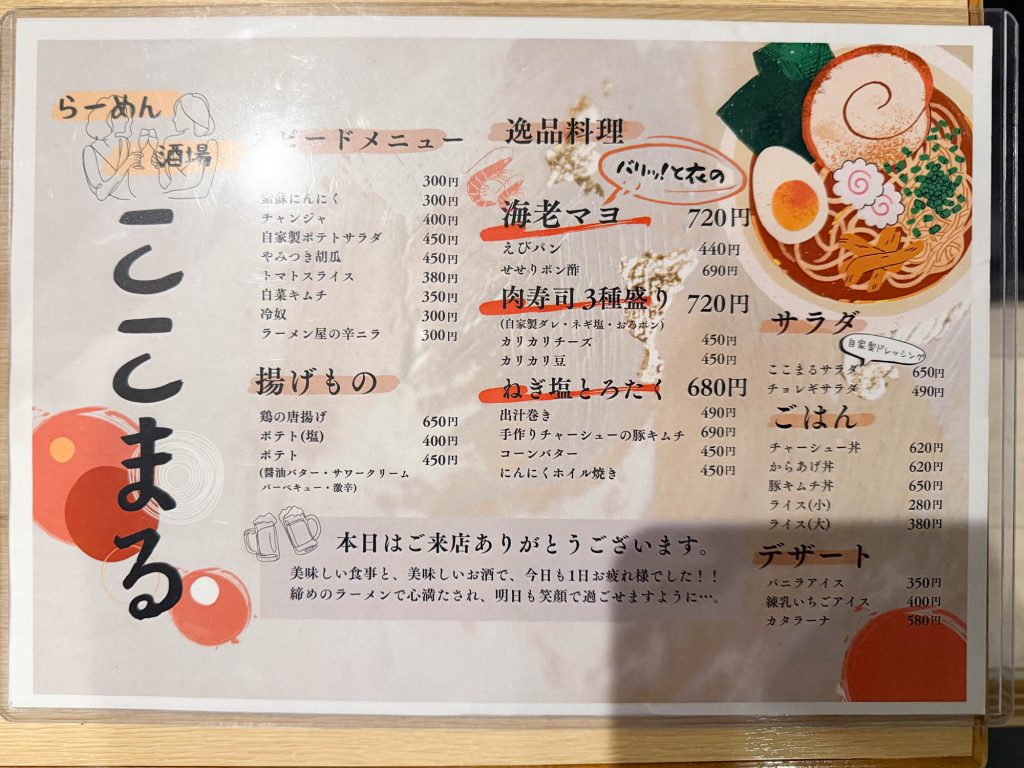 らーめん
酒場
ここまる
ードメニュー
300円
紫蘇にんにく 300円
チャンジャ 400円
自家製ポテトサラダ 450円
やみつき胡瓜 450円
トマトスライス 380円
白菜キムチ 350円
冷奴 300円
ラーメン屋の辛ニラ 300円
揚げもの
鶏の唐揚げ 650円
ポテト(塩) 400円
ポテト 450円
(醤油バター・サワークリーム
バーベキュー・激辛)
逸品料理
バリッッ!と衣の
海老マヨ 720円
えびパン 440円
せせりポン酢 690円
肉寿司 3種盛り 720円
(自家製ダレ・ネギ塩・おろポン)
カリカリチーズ 450円
カリカリ豆 450円
ねぎ塩とろたく 680円
出汁巻き 490円
手作りチャーシューの豚キムチ 690円
コーンバター 450円
にんにくホイル焼き 450円
サラダ
自家製ドレッシング
ここまるサラダ 650円
チョレギサラダ 490円
ごはん
チャーシュー丼 620円
からあげ丼 620円
豚キムチ丼 650円
ライス(小) 280円
ライス(大) 380円
デザート
バニラアイス 350円
練乳いちごアイス 400円
カタラーナ 580円
本日はご来店ありがとうございます。
美味しい食事と、美味しいお酒で、今日も1日お疲れ様でした！！
締めのラーメンで心満たされ、明日も笑顔で過ごせますように…。